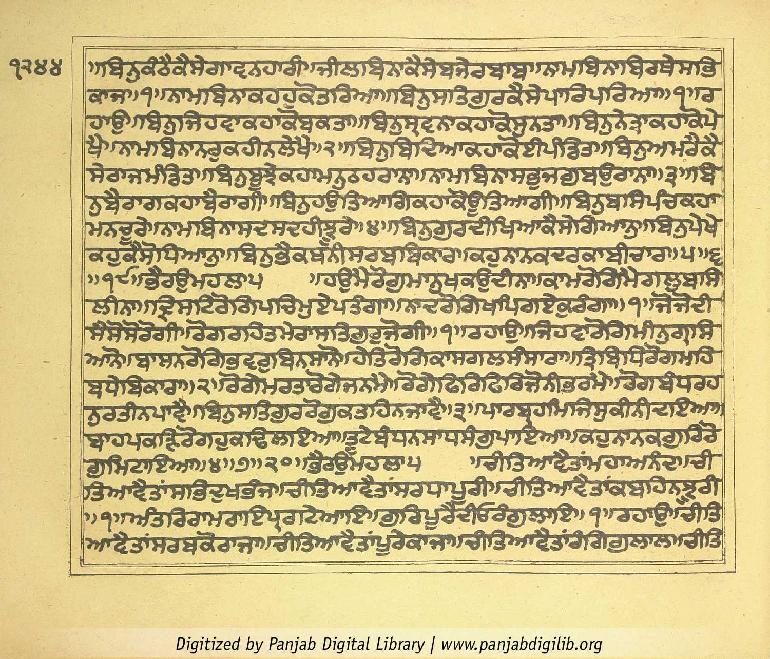 ੧੨੪੪
॥ਬਿਨੁਕੰਠੈਕੈਸੇਗਾਵਨਹਾਰੀ॥ਜੀਲਾਬਿਨਾਕੈਸੇਬਜੈਰਬਾਬ॥ਨਾਮਬਿਨਾਬਿਰਥੇਸਭਿ
ਕਾਜ॥੧॥ਨਾਮਬਿਨਾਕਹਹੁਕੋਤਰਿਆ॥ਬਿਨੁਸਤਿਗੁਰਕੈਸੇਪਾਰਿਪਰਿਆ॥੧॥ਰ
ਹਾਉ॥ਬਿਨੁਜਿਹਵਾਕਹਾਕੋਬਕਤਾ॥ਬਿਨੁਸ੍ਰਵਨਾਕਹਾਕੋਸੁਨਤਾ॥ਬਿਨੁਨੇਤ੍ਰਾਕਹਾਕੋਪੇ
ਖੈ॥ਨਾਮਬਿਨਾਨਰੁਕਹੀਨਲੇਖੈ॥੨॥ਬਿਨੁਬਿਦਿਆਕਹਾਕੋਈਪੰਡਿਤ॥ਬਿਨੁਅਮਰੈਕੈ
ਸੇਰਾਜਮੰਡਿਤ॥ਬਿਨੁਬੂਝੇਕਹਾਮਨੁਠਹਰਾਨਾ॥ਨਾਮਬਿਨਾਸਭੁਜਗੁਬਉਰਾਨਾ॥੩॥ਬਿ
ਨੁਬੈਰਾਗਕਹਾਬੈਰਾਗੀ॥ਬਿਨੁਹਉਤਿਆਗਿਕਹਾਕੋਊਤਿਆਗੀ॥ਬਿਨੁਬਸਿਪੰਚਕਹਾ
ਮਨਚੂਰੇ॥ਨਾਮਬਿਨਾਸਦਸਦਹੀਝੂਰੇ॥੪॥ਬਿਨੁਗੁਰਦੀਖਿਆਕੈਸੇਗਿਆਨੁ॥ਬਿਨੁਪੇਖੇ
ਕਹੁਕੈਸੋਧਿਆਨੁ॥ਬਿਨੁਭੈਕਥਨੀਸਰਬਬਿਕਾਰ॥ਕਹੁਨਾਨਕਦਰਕਾਬੀਚਾਰ॥੫॥੬
॥੧੯॥ਭੈਰਉਮਹਲਾ੫ ॥ਹਉਮੈਰੋਗੁਮਾਨੁਖਕਉਦੀਨਾ॥ਕਾਮਰੋਗਿਮੈਗਲੁਬਸਿ
ਲੀਨਾ॥ਦ੍ਰਿਸਟਿਰੋਗਿਪਚਿਮੁਏਪਤੰਗਾ॥ਨਾਦਰੋਗਿਖਪਿਗਏਕੁਰੰਗਾ॥੧॥ਜੋਜੋਦੀ
ਸੈਸੋਸੋਰੋਗੀ॥ਰੋਗਰਹਿਤਮੇਰਾਸਤਿਗੁਰੁਜੋਗੀ॥੧॥ਰਹਾਉ॥ਜਿਹਵਾਰੋਗਿਮੀਨੁਗ੍ਰਸਿ
ਆਨੋ॥ਬਾਸਨਰੋਗਿਭਵਰੁਬਿਨਸਾਨੋ॥ਹੇਤਰੋਗਕਾਸਗਲਸੰਸਾਰਾ॥ਤ੍ਰਿਬਿਧਿਰੋਗਮਹਿ
ਬਧੇਬਿਕਾਰਾ॥੨॥ਰੋਗੇਮਰਤਾਰੋਗੇਜਨਮੈ॥ਰੋਗੇਫਿਰਿਫਿਰਿਜੋਨੀਭਰਮੈ॥ਰੋਗਬੰਧਰਹ
ਨੁਰਤੀਨਪਾਵੈ॥ਬਿਨੁਸਤਿਗੁਰਰੋਗੁਕਤਹਿਨਜਾਵੈ॥੩॥ਪਾਰਬ੍ਰਹਮਿਜਿਸੁਕੀਨੀਦਇਆ॥
ਬਾਹਪਕੜਿਰੋਗਹੁਕਢਿਲਇਆ॥ਤੂਟੇਬੰਧਨਸਾਧਸੰਗੁਪਾਇਆ॥ਕਹੁਨਾਨਕਗੁਰਿਰੋ
ਗੁਮਿਟਾਇਆ॥੪॥੭॥੨੦॥ਭੈਰਉਮਹਲਾ੫ ॥ਚੀਤਿਆਵੈਤਾਂਮਹਾਅਨੰਦ॥ਚੀ
ਤਿਆਵੈਤਾਂਸਭਿਦੁਖਭੰਜ॥ਚੀਤਿਆਵੈਤਾਂਸਰਧਾਪੂਰੀ॥ਚੀਤਿਆਵੈਤਾਂਕਬਹਿਨਝੂਰੀ
॥੧॥ਅੰਤਰਿਰਾਮਰਾਇਪ੍ਰਗਟੇਆਇ॥ਗੁਰਿਪੂਰੈਦੀਓਰੰਗੁਲਾਇ॥੧॥ਰਹਾਉ॥ਚੀਤਿ
ਆਵੈਤਾਂਸਰਬਕੋਰਾਜਾ॥ਚੀਤਿਆਵੈਤਾਂਪੂਰੇਕਾਜਾ॥ਚੀਤਿਆਵੈਤਾਂਰੰਗਿਗੁਲਾਲ॥ਚੀਤਿ
Digitized by Panjab Digital Library | www.panjabdigilib.org